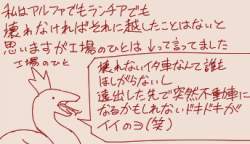 私はアルファでもランチアでも
壊れなければそれに越したことはないと
思いますが工場のひとは↓って言ってました
工場のひと
壊れないイタ車なんて誰も
ほしがらないし
遠出した先で突然不動車に
なるかもしれないドキドキが
イイのヨ(笑)